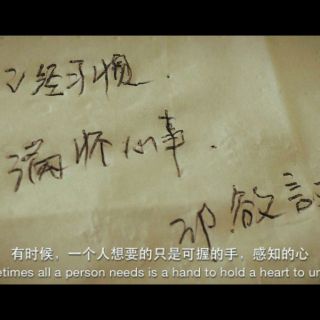 已经习惯.
满怀心事.
邓敬言
有时候，一个人想要的只是可握的手，感知的心
etimes all a person needs is a hand to hold a heart to un